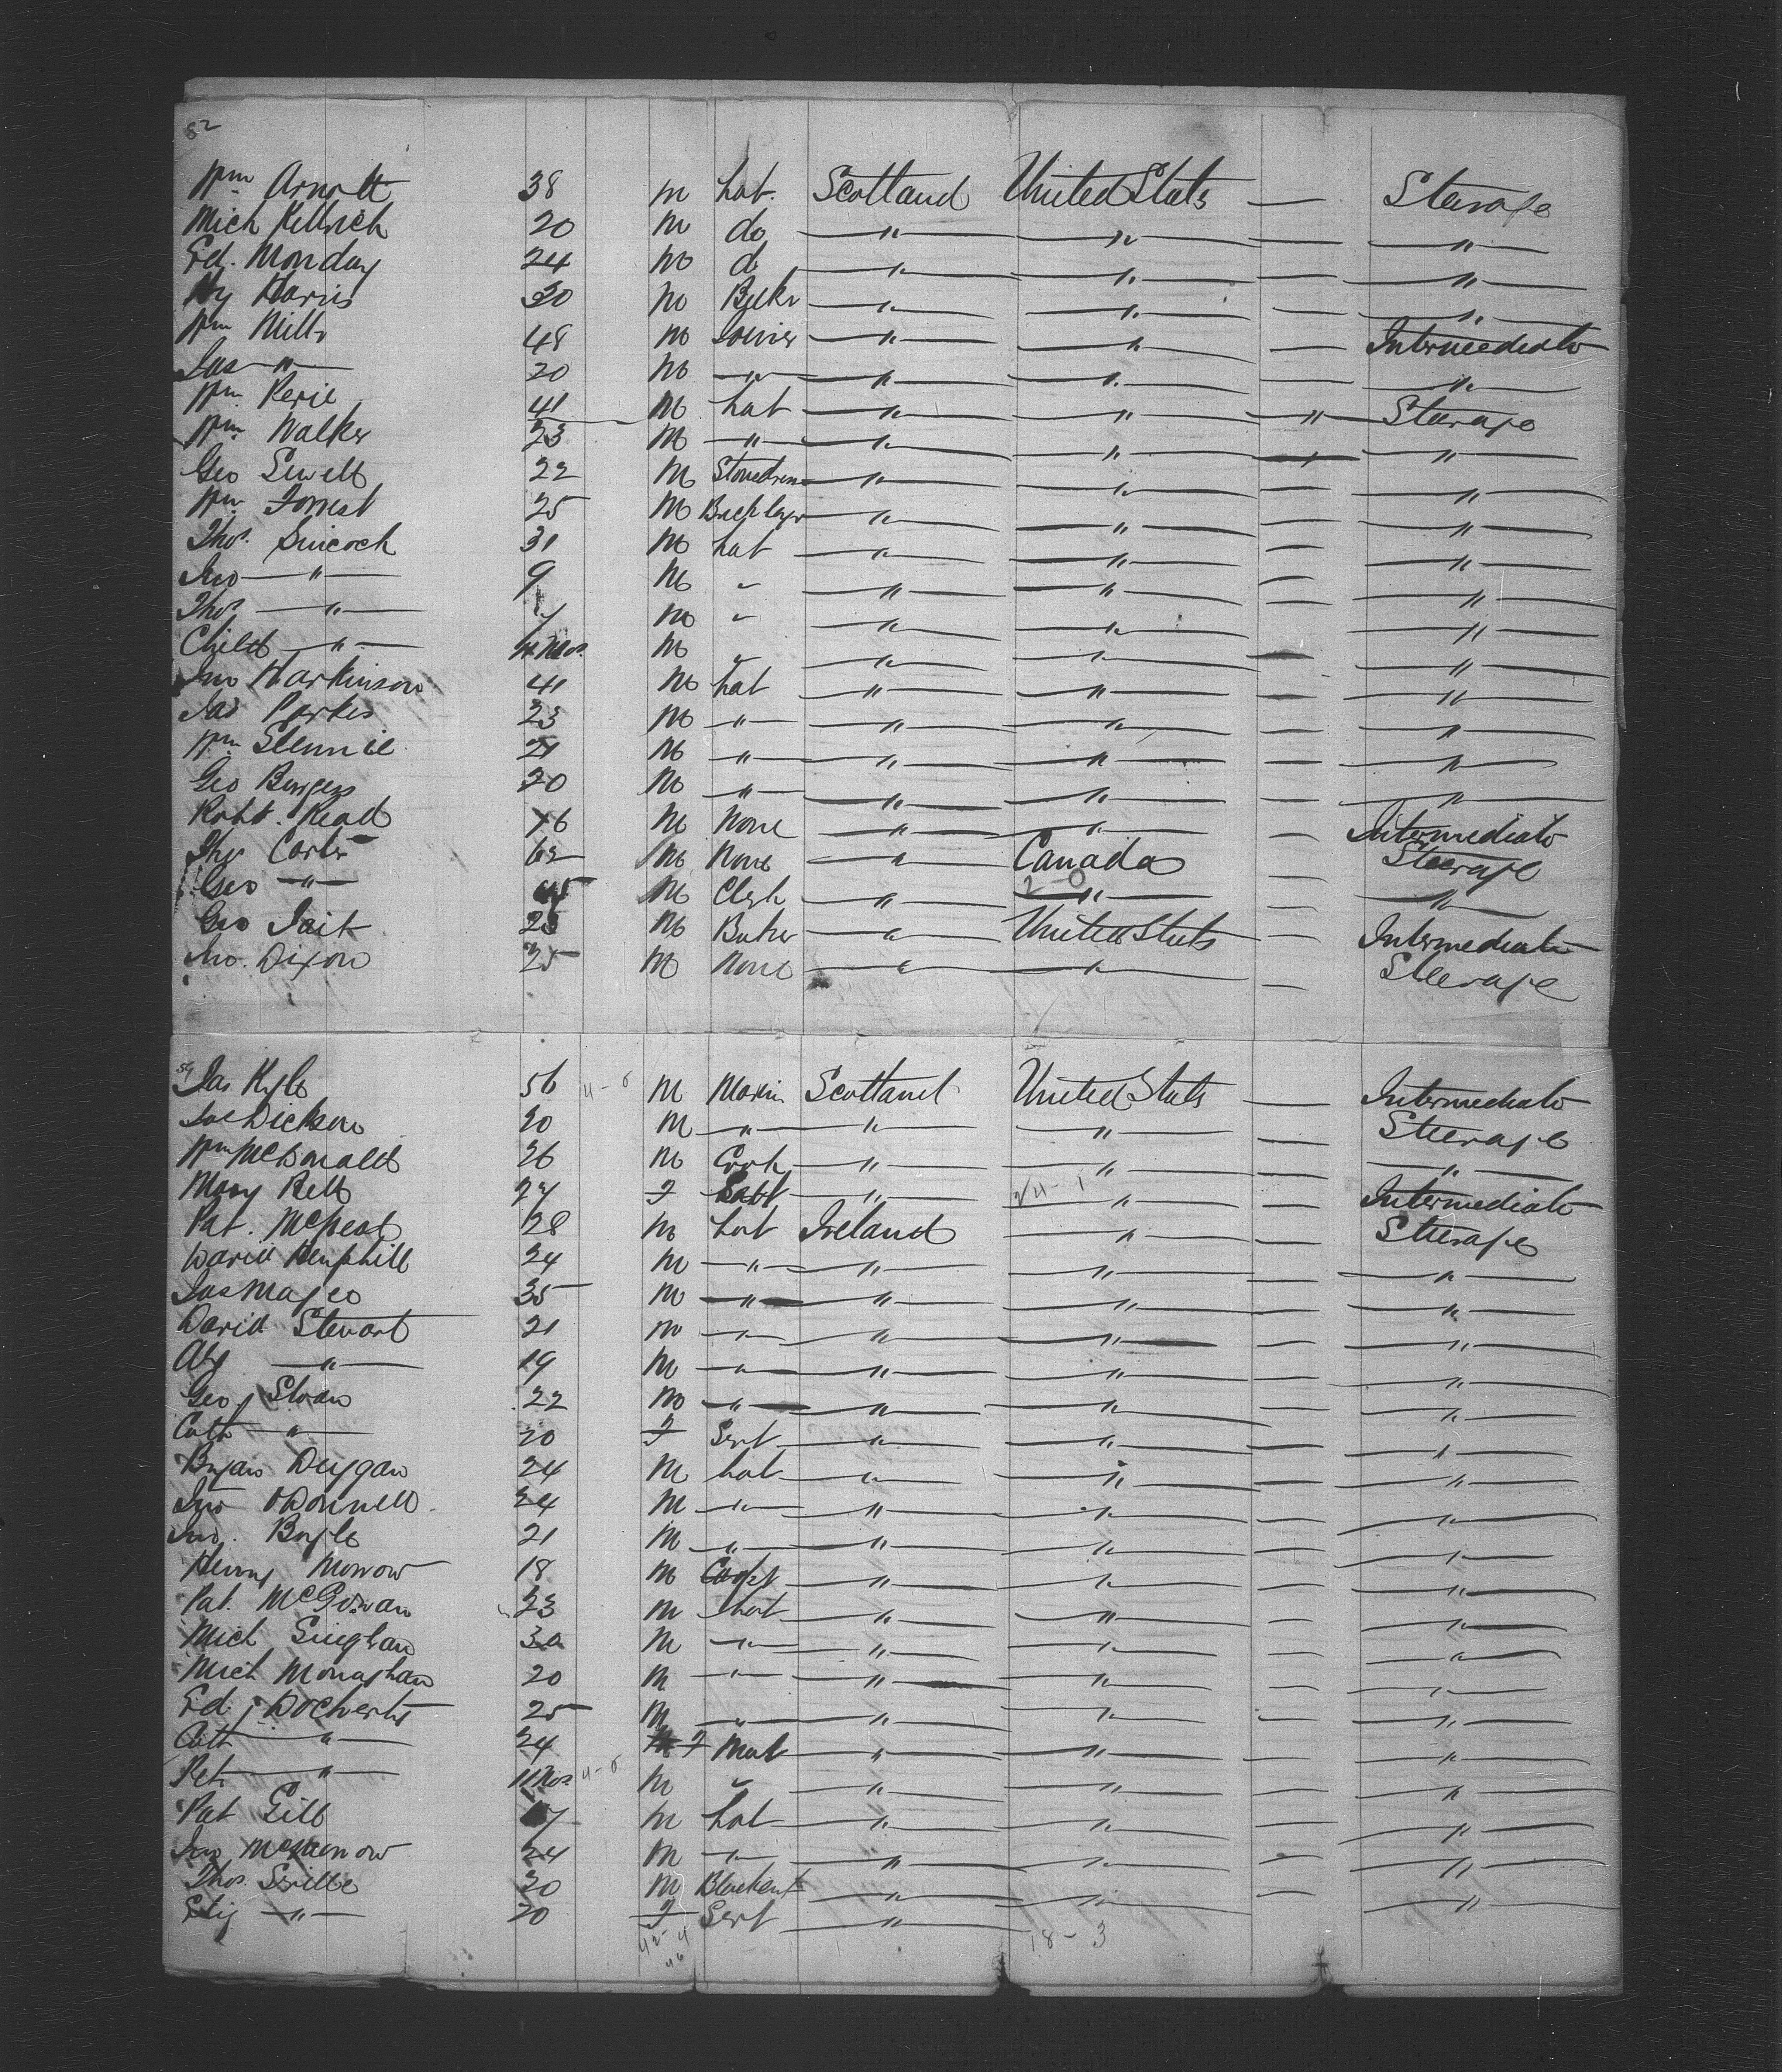 82
Wm Arnott 38 M Lab. Scotland United Stats — Steerage
Mich 20 M do " " — "
Ed. Monday 24 M do " " — "
Hy Harris 30 M " " — "
Wm Mills 48 M Joiner " " — Intermediate
Jas " 20 M " " " — "
Wm 41 M Lab " " " Steerage
Wm Walker 23 M " " " — "
Geo Sewell 22 M " " — "
Wm Forrest 25 M Bricklayr " " — "
Thos. Simcock 31 M Lab " " — "
Jno " 9 M " " " — "
Thos " 7 M " " " — "
Child " 4 Mos. M " " " — "
Jno Harkinson 41 M Lab " " — "
Jas 23 M " " " — "
Wm Slennie 21 M " " " — "
Geo Burgess 20 M " " " — "
Robt. Read 76 M None " " — Intermediate
Thos Carter 62 M None " Canada — Steerage
Geo " 45 M Clerk " " — "
2 0
Geo Tait 23 M " United Stats — Intermediate
Jno. Dixon 25 M None " " — Steerage
Jas Kyle 56 4-0 M Scotland United Stats — Intermediate
Dickson 20 M " " " — Steerage
Wm McDonald 26 M Cook " " — "
Mary Bell 27 F " " — Intermediate
24-1
Pat. 28 M Lab Ireland " — Steerage
David Hemphill 24 M " " " — "
Jas Magee 35 M " " " — "
David Stewart 21 M " " " — "
" 19 M " " " — "
Geo Sloan 22 M " " " — "
Cath " 20 F Servt " " — "
Bryan Duggan 24 M Lab " " — "
Jno O'Donnell 24 M " " " — "
Jno. Boyle 21 M " " " — "
Henry Morrow 18 M " " — "
Pat. McGowan 23 M Lab " " — "
Mich 30 M " " " — "
Mich Monaghan 20 M " " " — "
Ed. Docherty 25 M " " " — "
Cath " 24 F " " — "
Pet. " 11 Mos 4-0 M " " " — "
Pat Gill 17 M Lab " " — "
Jno 24 M " " " — "
Thos. 20 M " " — "
Eliz " 20 F Servt "
42-4 18-3
46